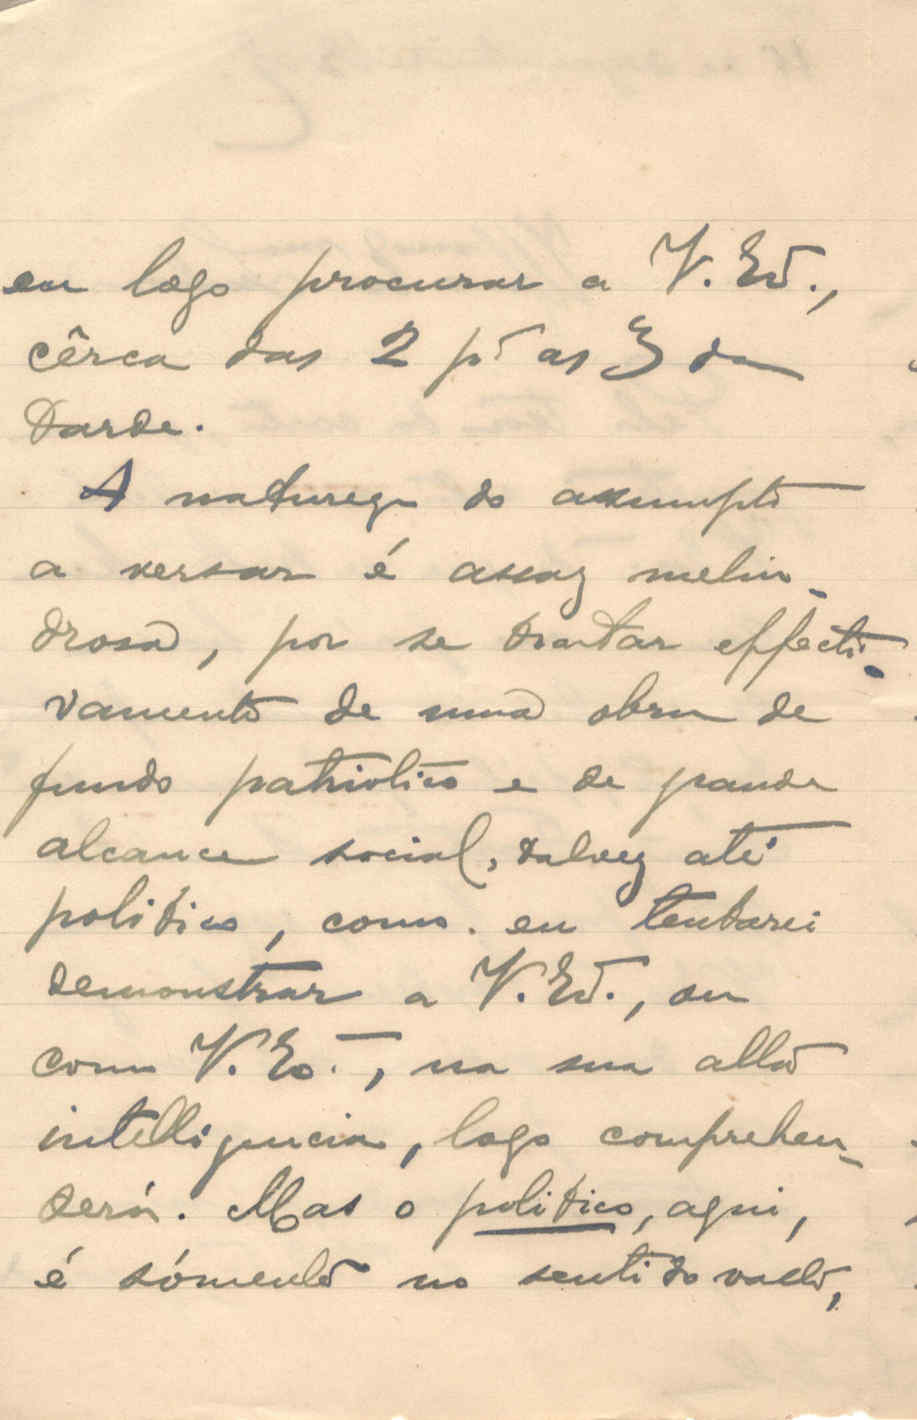 eu logo procurar a V. Exª.,
cêrca das 2 pª as 3 da
tarde.
A natureza do assumpto
a versar é assaz melin-
drosa, por se tratar effecti-
vamente de uma obra de
fundo patriotico e de grande
alcance social, talvez até
politico, como eu tentarei
demonstrar a V. Exª., ou
como V. Exª., na sua alta
intelligencia, logo comprehen-
derá. Mas o politico, aqui,
é sómente no sentido vasto,